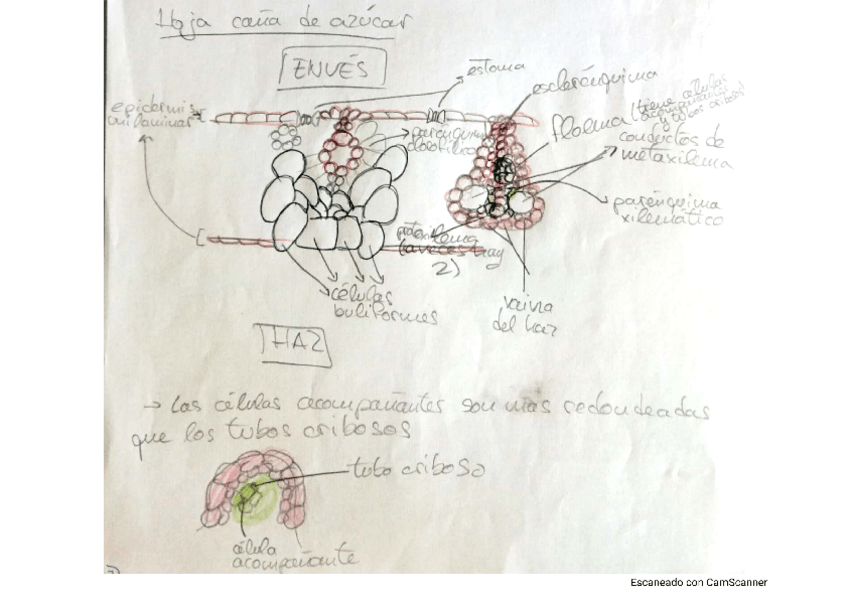 Hoja caña de azúcar
ENVÉS
estoma
esclerénquima
epidermis
unilaminar
parénquima
clorofílico
floema (tiene células
acompañantes
y tubos cribosos)
conductos de
metaxilema
parénquima
xilemático
protoxilema
(a veces hay
2)
células
buliformes
vaina
del haz
HAZ
→ Las células acompañantes son más redondeadas
que los tubos cribosos
tubo criboso
célula
acompañante
Escaneado con CamScanner